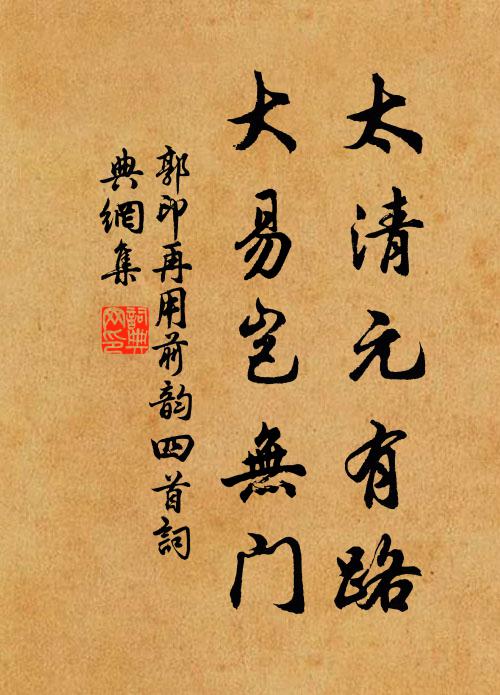 太清元有路
大易豈無門
郭印再用前韵四首詞
典網集
詞典
网印